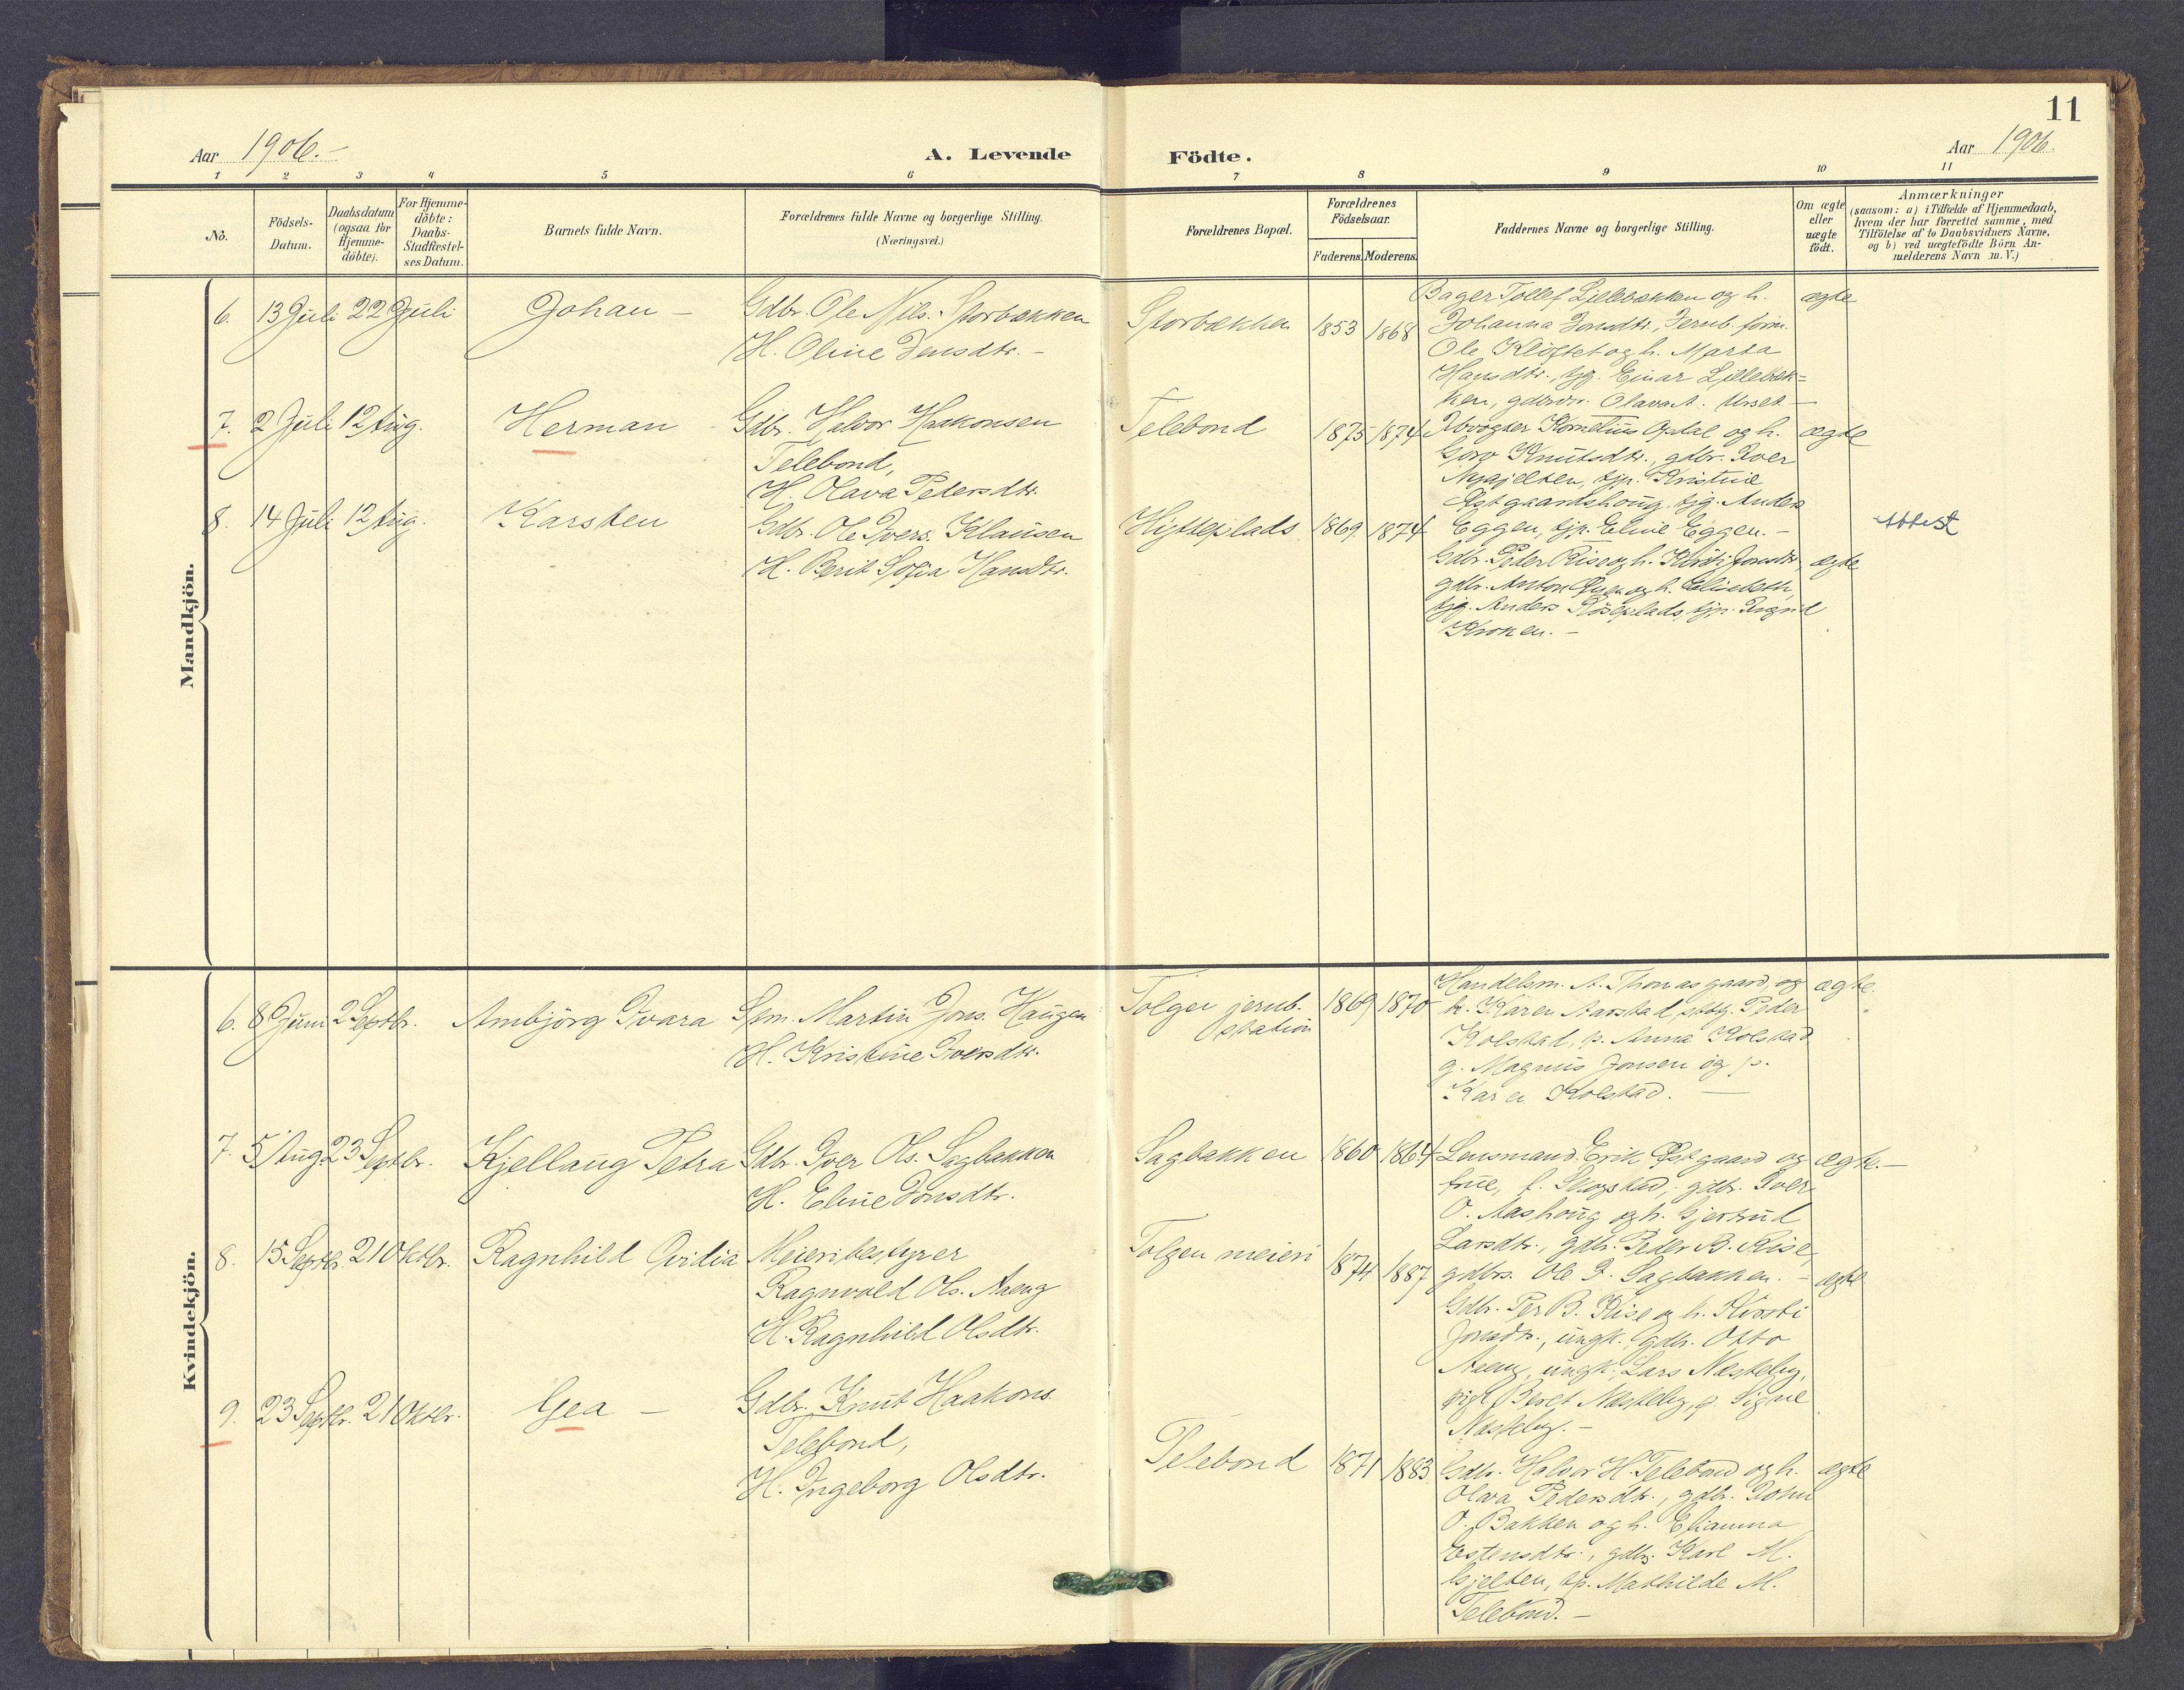 11
Aar 1906.-
A. Levende Födte.
Aar 1906.
1 2 3 4 5 6 7 8 9 10 11
No.
Födsels-
Datum.
Daabsdatum
(ogsaa for
Hjemme-
döbte).
For Hjemme-
döbte:
Daabs-
Stadfæstel-
ses Datum.
Barnets fulde Navn.
Forældrenes fulde Navne og borgerlige Stilling.
(Næringsvei.)
Forældrenes Bopæl.
Forældrenes
Födselsaar.
Faderens. Moderens.
Faddernes Navne og borgerlige Stilling.
Om ægte
eller
uægte
födt.
Anmærkninger
(saasom: a) i Tilfælde af Hjemmedaab,
hvem der har forrettet samme, med
Tilföielse af to Daabsvidners Navne,
og b) ved uægtefödte Börn An-
melderens Navn m.V.)
Mandkjön.
6. 13 Juli 22 Juli Johan - Gdbr. Ole Nils. Storbækken
H. Oline Jensdtr. -
Storbækken 1853 1868
Bager Tollef Lillebækken og h.
Johanna Jonsdtr., Jernb.form.
Ole Kløftet og h. Marta
Hansdtr., tjg. Einar Lillebæk=
ken, gdbrdr. Olava A. Urset -
ægte
7. 2 Juli 12 Aug. Herman - Gdbr. Halvor Haakonsen
Telebond,
H. Olava Pedersdtr.
Telebond 1875 1874
Kornelius Opdal og h.
Goro Knutsdtr., gdbr. Iver
Nygjelten, tjp. Kristine
Østgaardshoug, tjg. Anders
Eggen, tjp. Eline Eggen. -
ægte
8. 14 Juli 12 Aug. Karsten Gdbr. Ole Ivers. Klausen
H. Berit Sofia Hansdtr.
Hytteplads 1869. 1874
Gdbr. Peder Rise og h. Kirsti Jonsdtr
gdbr. Anton Øyen og h. Elisabeth,
tjg. Anders Røseplads, tjp. Ingrid
Kroken. -
ægte
Attest
Kvindekjön.
6. 8 Juni 2 Septbr. Ambjörg Ivara Spm. Martin Jons. Haugen
H. Kristine Iversdtr.
Tolgen jernb.
station
1869 1870
Handelsm. A. Thomasgaard og
h. Karen Aarstad, Peder
Kolstad, p. Anna Kolstad
g. Magnus Jonsen og p.
Karen Kolstad. -
ægte.
7. 5 Aug. 23 Septbr. Kjellaug Petra Gdbr. Iver Ols. Sagbakken
H. Eline Jonsdtr.
Sagbakken 1860 1864
Lensmand Erik Østgaard og
frue, f. Skogstad, gdbr. Iver
O. Aashoug og h. Gjertrud
Larsdtr., gdbr. Peder B. Rise,
gdbrs. Ole I. Sagbakken. -
ægte. -
8. 15 Septbr. 21 Oktbr. Ragnhild Ovidia Meieribestyrer
Ragnvald Ols. Aaeng
H. Ragnhild Olsdtr.
Tolgen meieri 1874 1887
Gdbr. Per B. Rise og h. Kirsti
Jonsdtr., ungk. gdbr. Otto
Aaeng, ungk. Lars Næsteby,
pige Beret Næsteby, p. Signe
Næsteby. -
ægte
9. 23 Septbr. 21 Oktbr. Gea - Gdbr. Knut Haakons.
Telebond,
H. Ingeborg Olsdtr.
Telebond 1871 1883
Gdbr. Halvor H. Telebond og h.
Olava Pedersdtr., gdbr. John
O. Bakken og h. Elianna
Estensdtr., gdbs. Karl M.
Gjelten, tp. Mathilde M.
Telebond. -
ægte